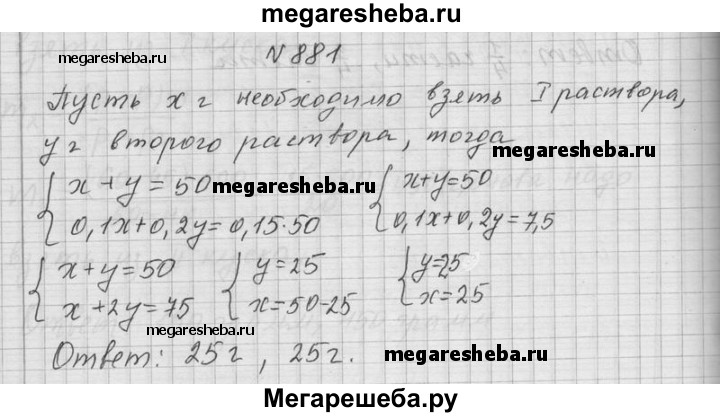 megaresheba.ru
N 881
megaresheba.ru
Пусть x г необходимо взять I раствора,
y г второго раствора, тогда
megaresheba.ru
{ x + y = 50 { x+y=50
megaresheba.ru
0,1x+0,2y=0,15·50 0,1x+0,2y=7,5
{ x+y=50 { y=25 { y=25
x+2y=75 x=50-25 x=25
megaresheba.ru
Ответ: 25г, 25г.
megaresheba.ru
Мегарешеба.ру